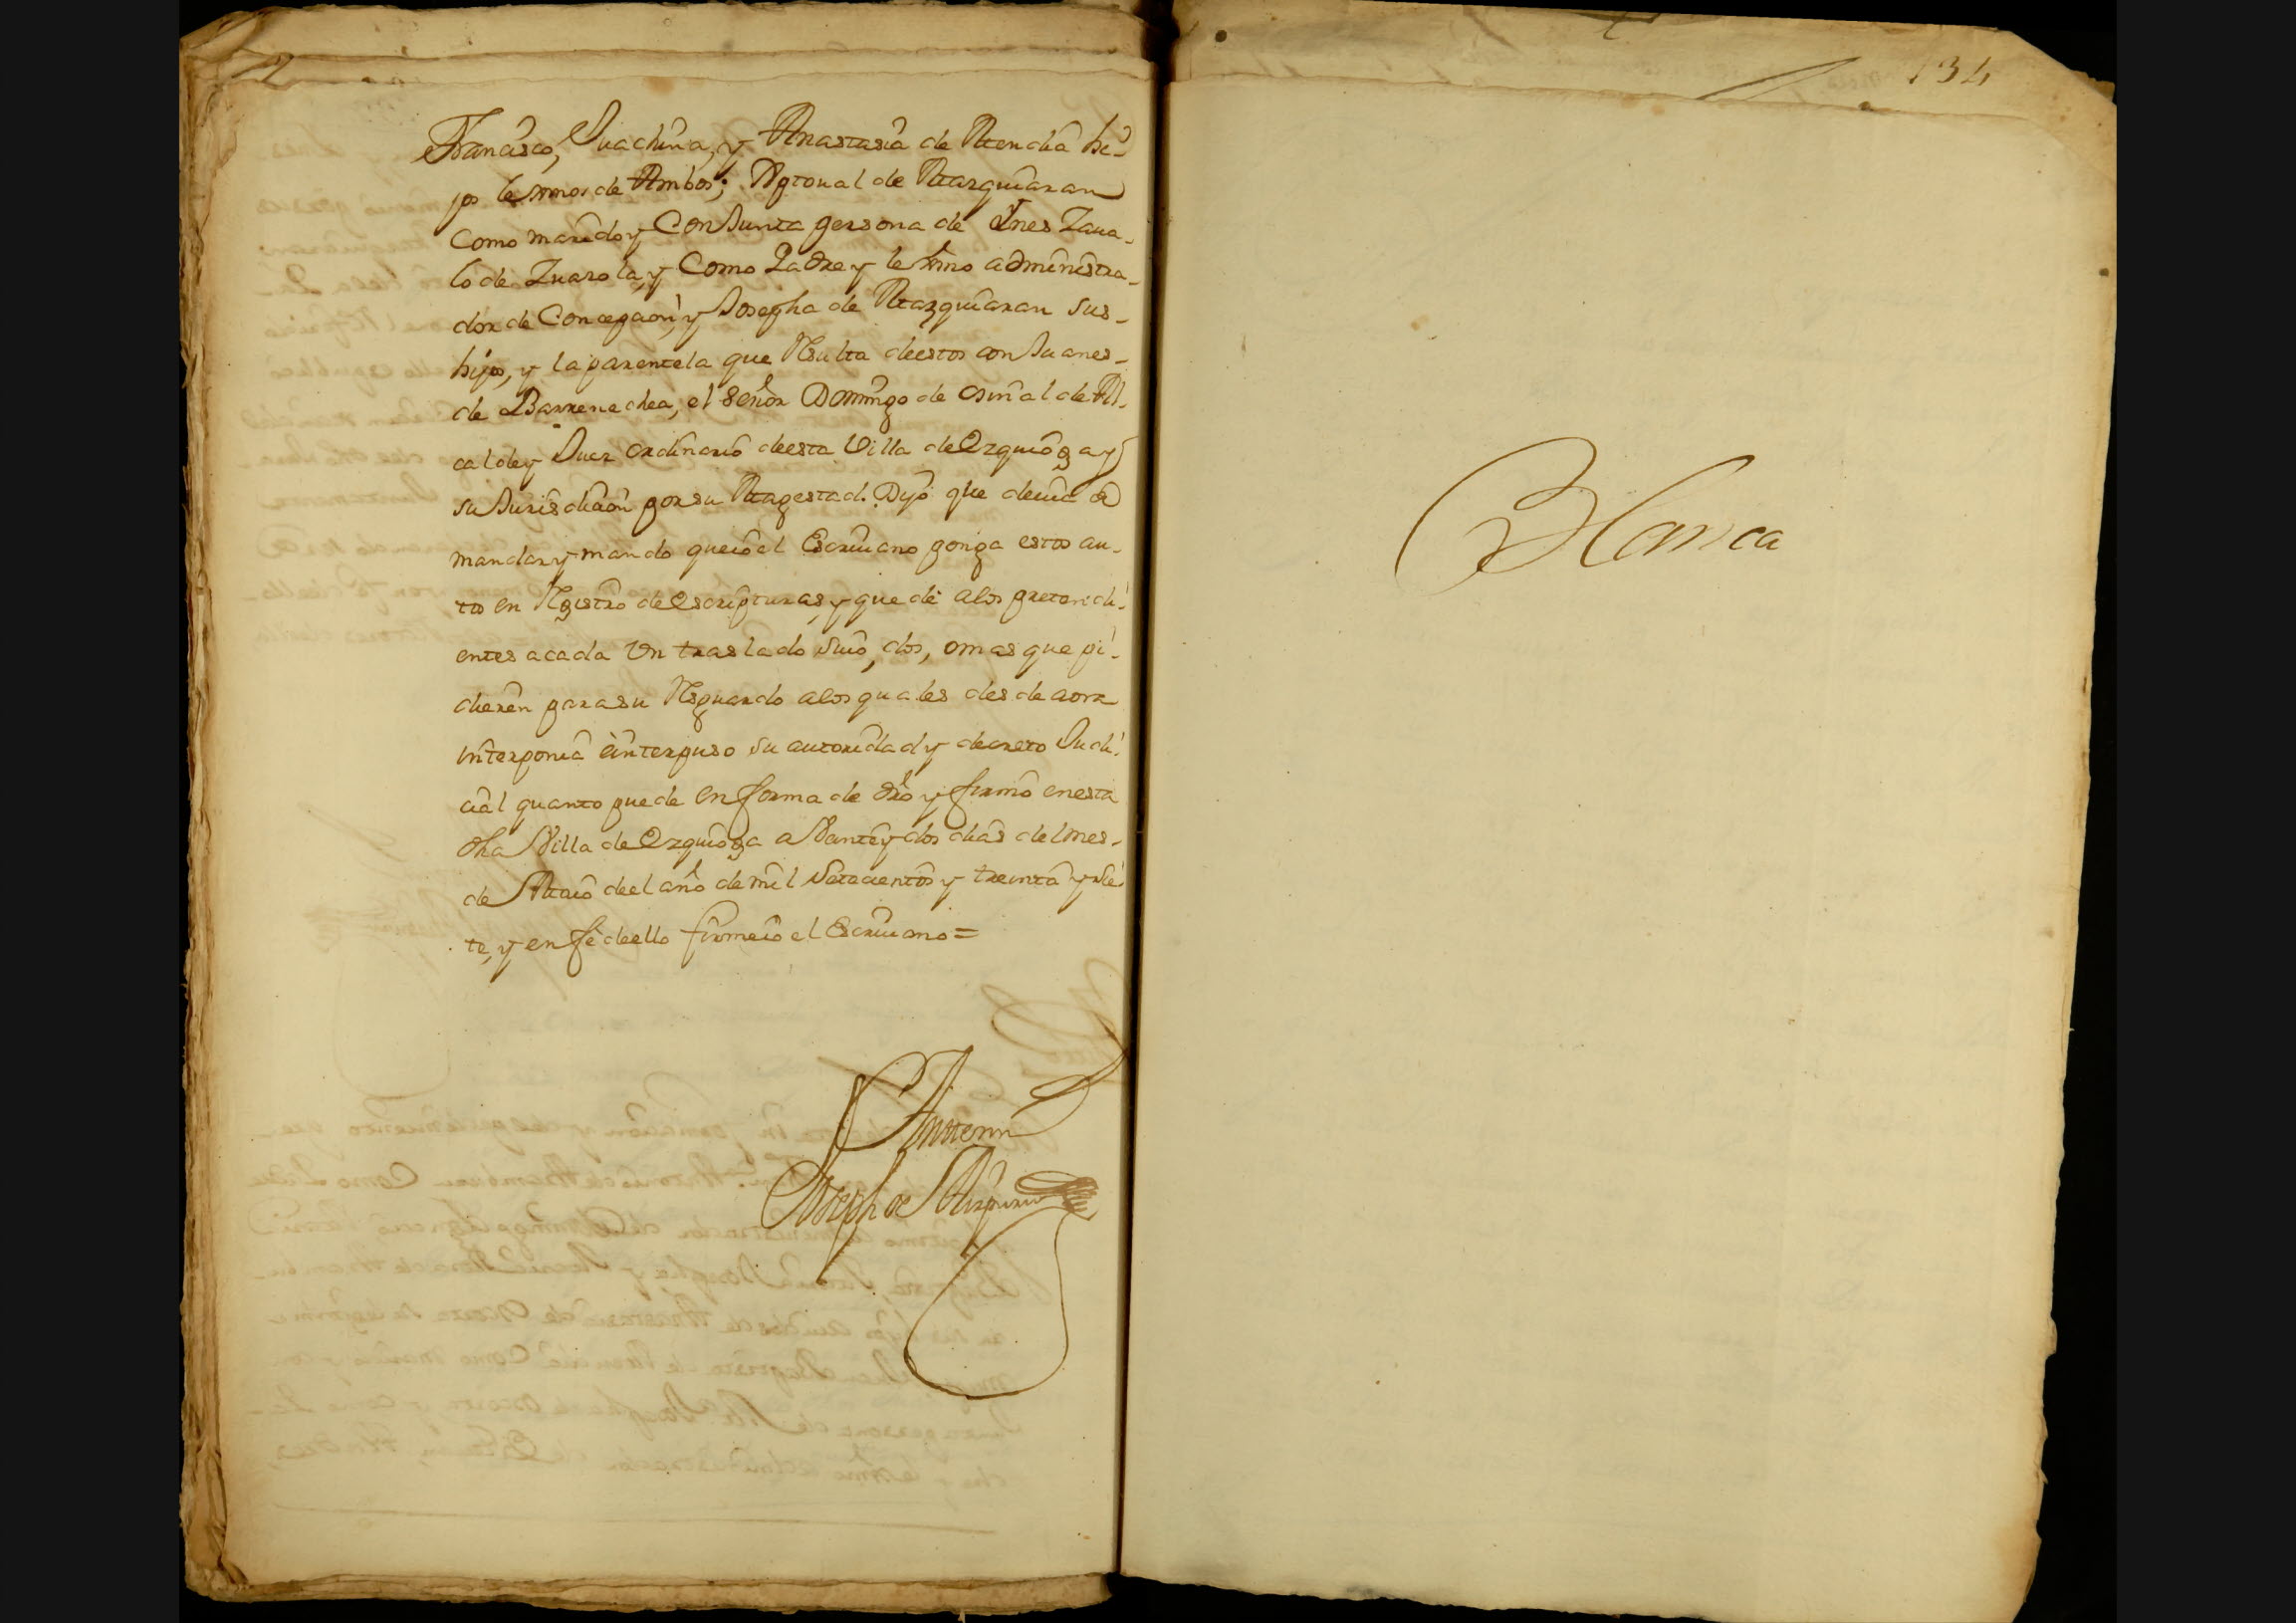 Francisco, Juachina, y Anastasia de Atencha hi-
jos lexmos de Ambos; Xptoual de Mazquiaran
como marido y Conjunta persona de Ynes Zaua-
lo de Zuazola, y Como Padre y lexmo administra-
dor de Concepcion, y Josepha de Mazquiaran sus-
hijos, y la parentela que Resulta deestos con Juanes-
de Barrenechea, el señor Domingo de Osinalde Al-
calde y Juez ordinario deesta Villa de Ezquioga y
su Jurisdicion por su Magestad. Dijo que deuia de
mandar y mando queio el Escriuano ponga estos au-
tos en Registro de escripturas, y que de alos pretendi-
entes acada Vn traslado Vno, dos, o mas que pi-
dieren para su Resguardo alos quales desde aora
interponia e interpuso su autoridad y decreto Judi-
cial quanto puede en forma de dro y firmo enesta
dha Villa de Ezquioga a Vante y dos dias del mes-
de Maio deel año de mil setecientos y treinta y sie-
te, y en fe deello firmeio el Escriuano =
Antemi
Joseph de Aizpuru
134
Blanca